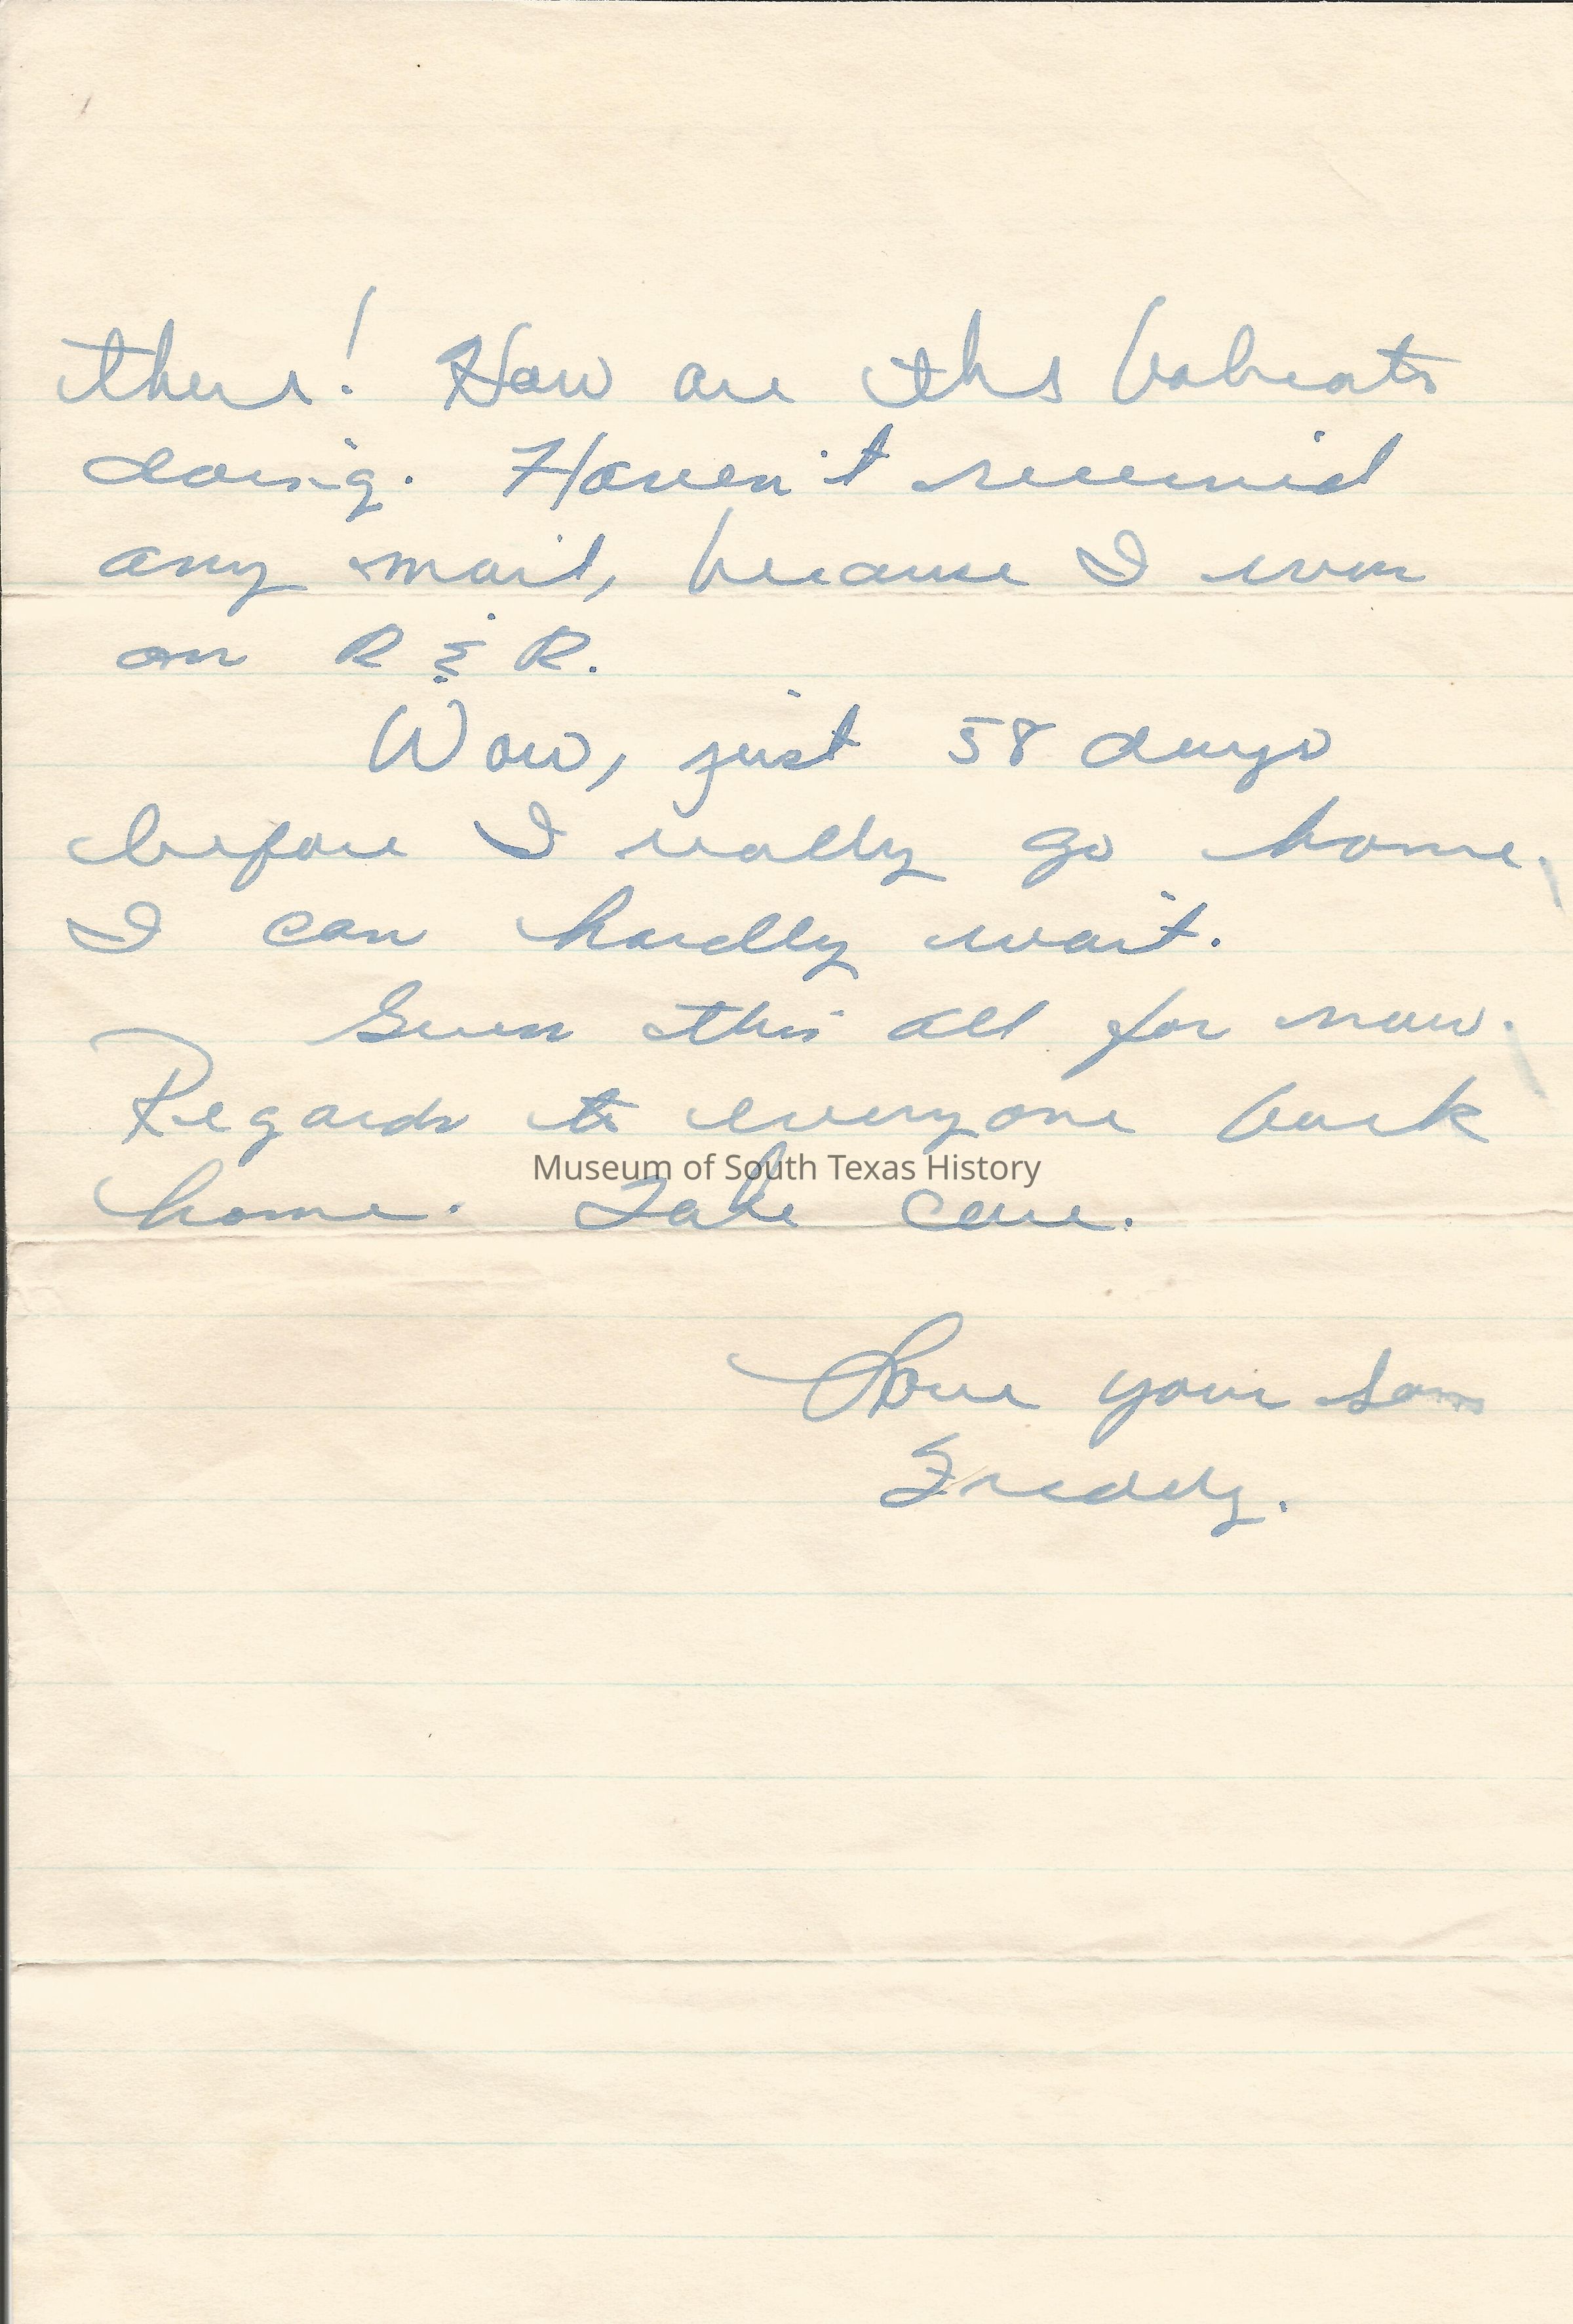 there! How are the bobcats
doing. Haven't received
any mail, because I was
on R & R.
Wow, just 58 days
before I really go home.
I can hardly wait.
Guess this all for now.
Regards to everyone back
Museum of South Texas History
home. Take care.
Love your son
Freddy.